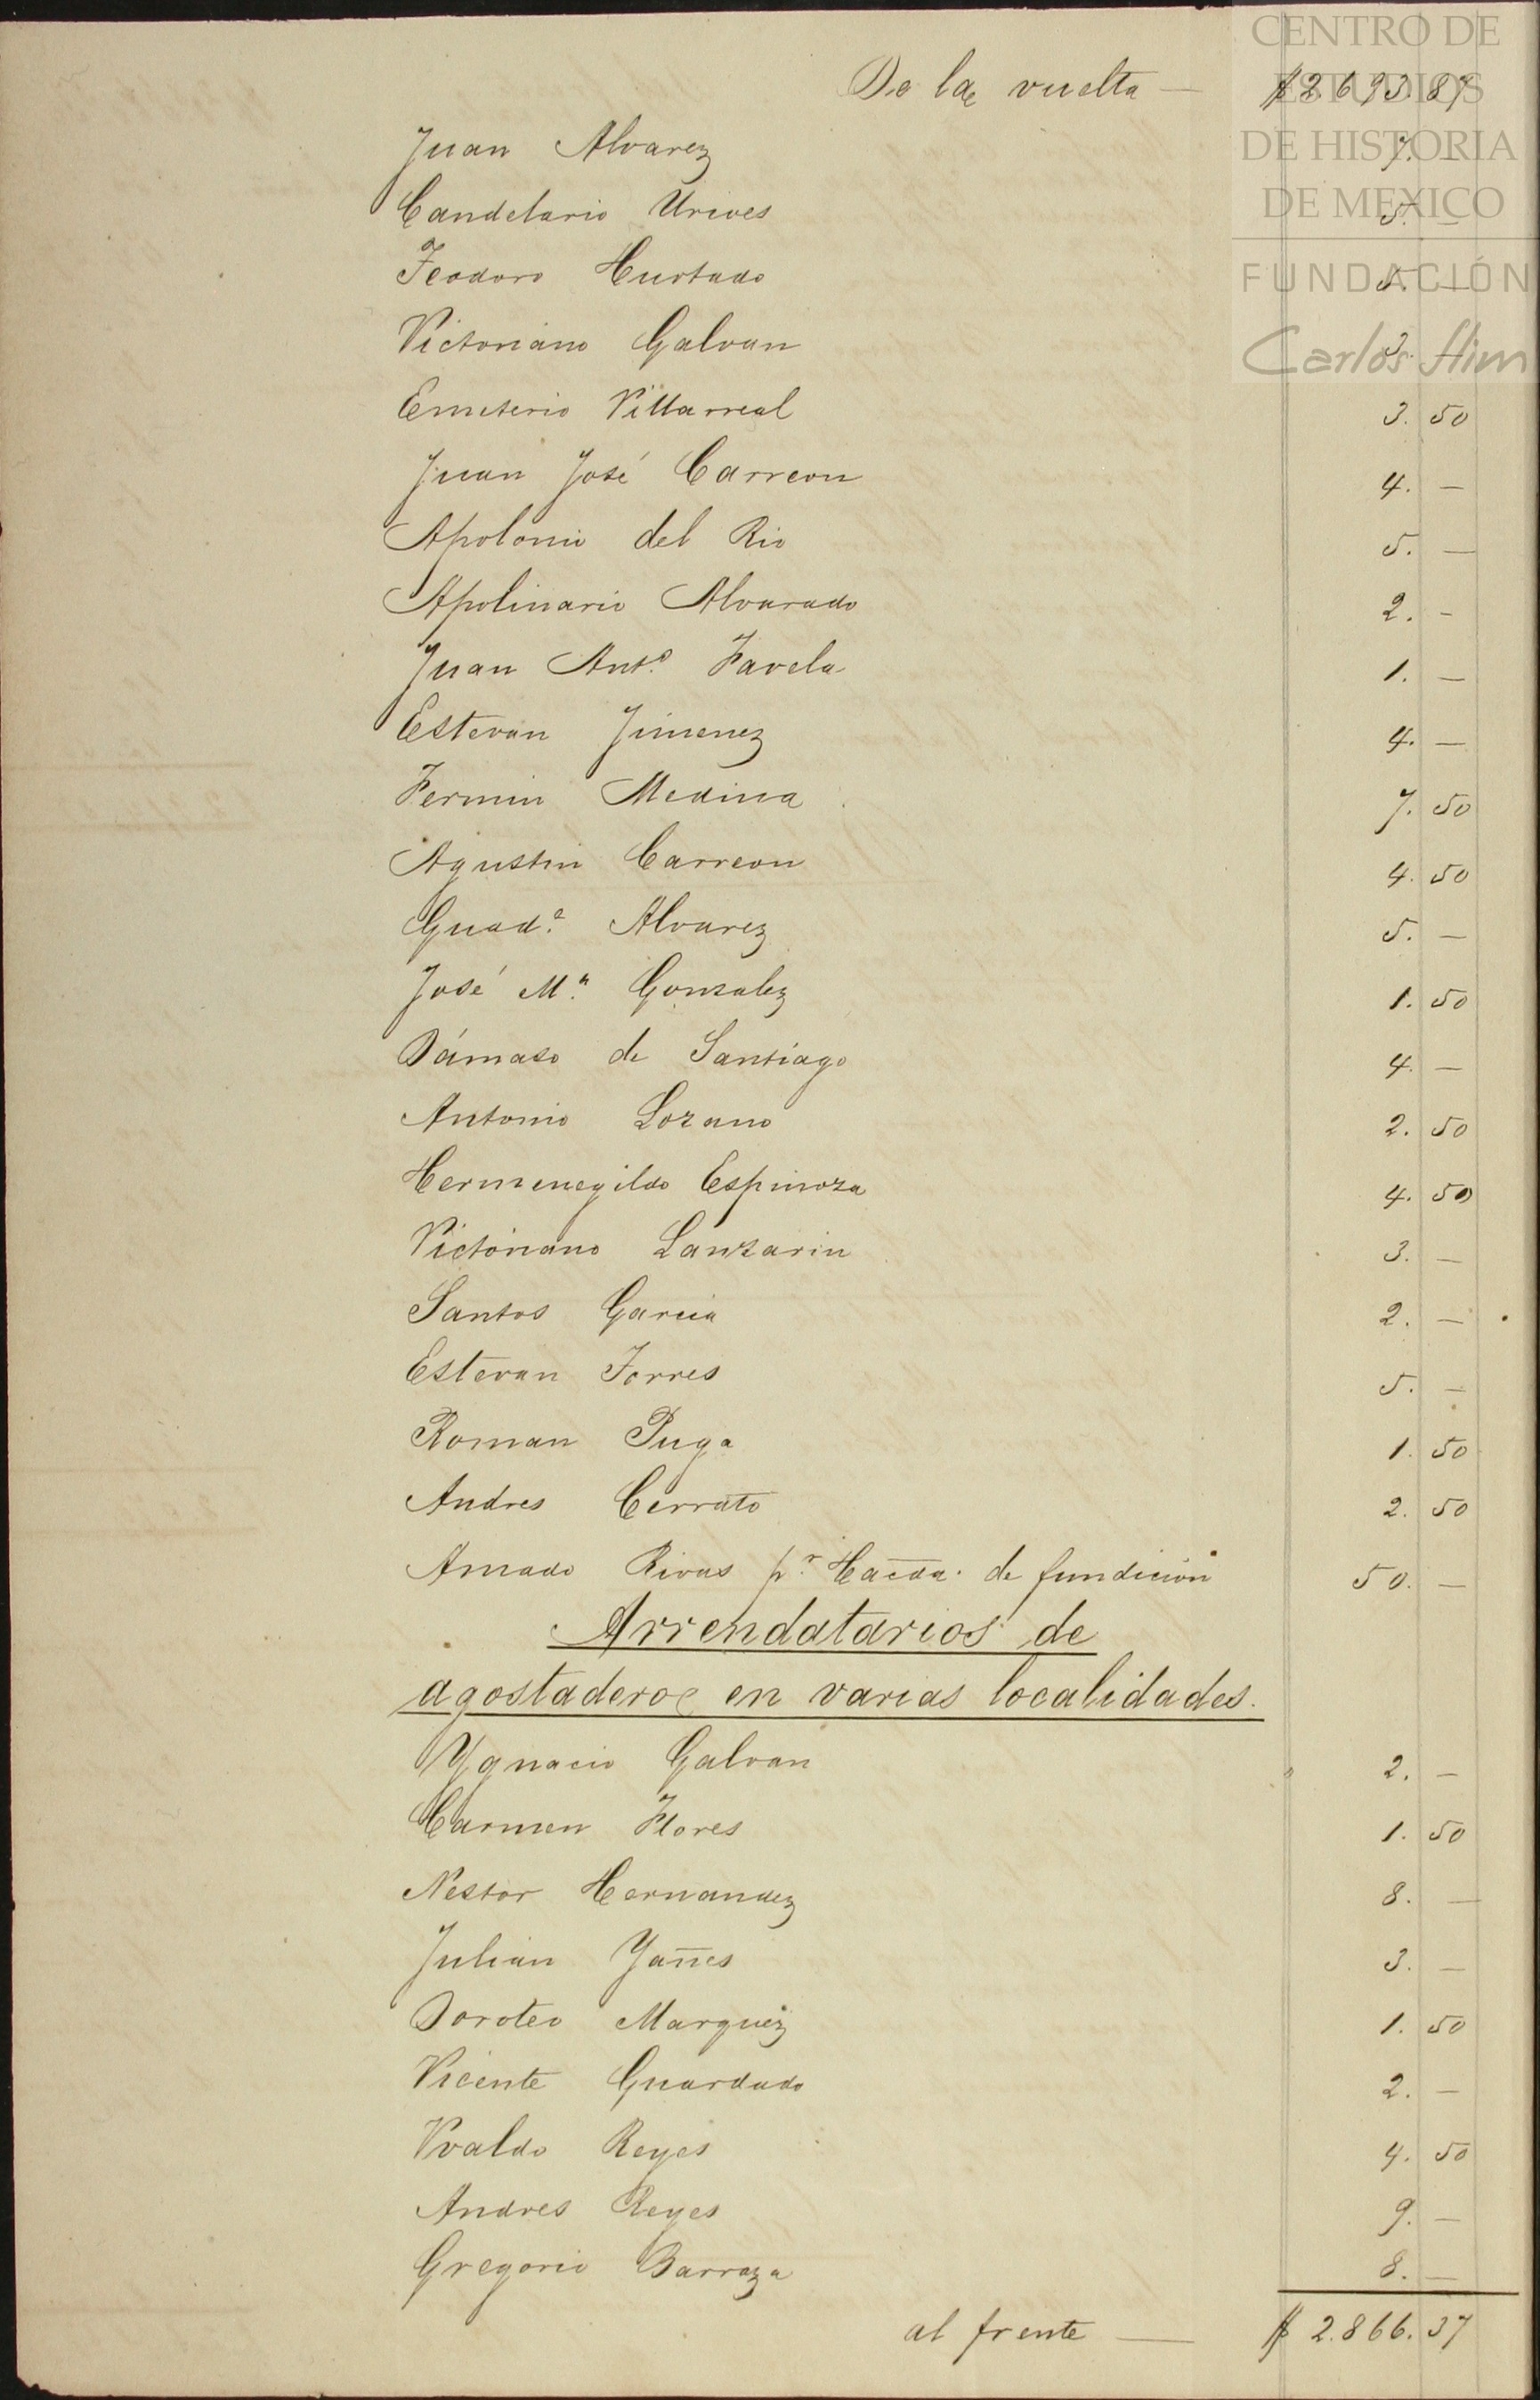 CENTRO DE
ESTUDIOS
DE HISTORIA
DE MEXICO
FUNDACIÓN
Carlos Slim
De la vuelta — $2693.87
Juan Alvarez 7. —
Candelario Urives 5. —
Teodoro Hurtado 5. —
Victoriano Galvan 3. —
Emeterio Villarreal 3. 50
Juan José Carreon 4. —
Apolonio del Rio 5. —
Apolinario Alvarado 2. —
Juan Antº Favela 1. —
Estevan Jimenez 4. —
Fermin Medina 7. 50
Agustin Carreon 4. 50
Guadᵉ Alvarez 5. —
José Mᵃ Gonzalez 1. 50
Dámaso de Santiago 4. —
Antonio Lozano 2. 50
Hermenegildo Espinoza 4. 50
Victoriano Lanzarin 3. —
Santos Garcia 2. —
Estevan Torres 5. —
Roman Puga 1. 50
Andres Cerrato 2. 50
Amado Rivas pʳ Hacda. de fundición 50. —
Arrendatarios de
agostaderos en varias localidades.
Ygnacio Galvan 2. —
Carmen Flores 1. 50
Nestor Hernandez 8. —
Julian Yañes 3. —
Doroteo Marquez 1. 50
Vicente Guardado 2. —
Vvaldo Reyes 4. 50
Andres Reyes 9. —
Gregorio Barraza 8. —
al frente — $ 2.866.37